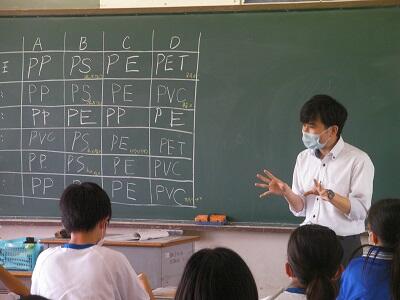 A B C D
PP PS PE PET
PP PS PE PVC
PP PE PP PE
PVC PS PE PET
PP PS PE PVC
PP PS PE PVC